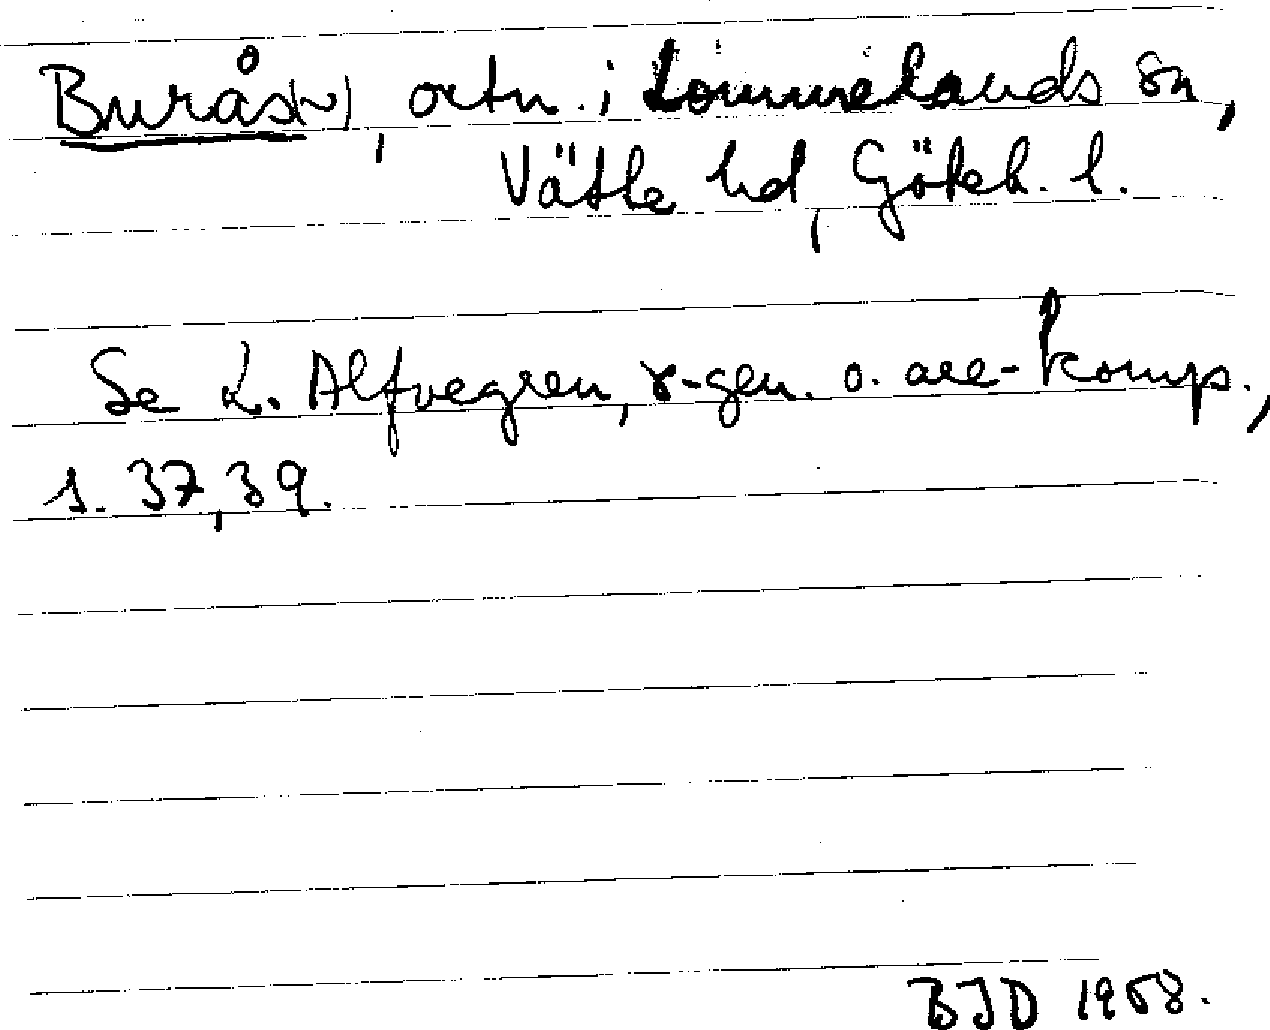 Burås(~), ortn. i Lommelands sn,
Vätle hd, Göteb. l.
Se L. Alfvegren, r-gen. o. are-komp.,
s. 37, 39.
BJD 1958.